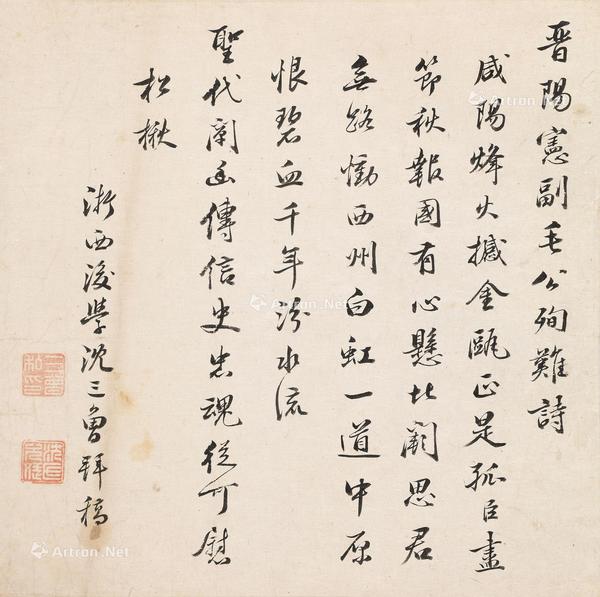 晋陽憲副毛公殉難詩
咸陽烽火撼金甌正是孤臣盡
節秋報國有心懸北闕思君
無路慟西州白虹一道中原
恨碧血千年汾水流
聖代闡幽傳信史忠魂從可慰
松楸
浙西後學沈三曾拜稿
Artron.Net
Artron.Net
Artron.Net
Artron.Net